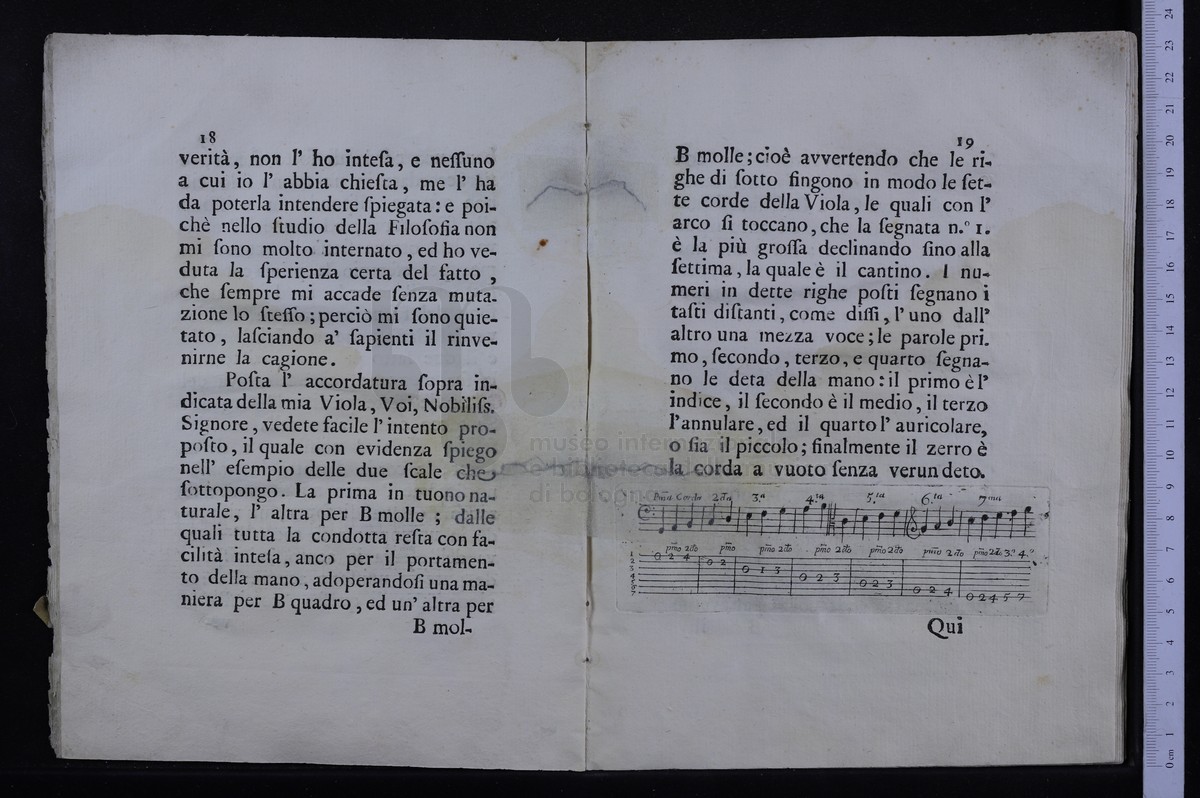 18
verità, non l' ho inteſa, e neſſuno
a cui io l' abbia chieſta, me l' ha
da poterla intendere ſpiegata: e poi-
chè nello ſtudio della Filoſofia non
mi ſono molto internato, ed ho ve-
duta la ſperienza certa del fatto,
che ſempre mi accade ſenza muta-
zione lo ſteſſo; perciò mi ſono quie-
tato, laſciando a' ſapienti il rinve-
nirne la cagione.
Poſta l' accordatura ſopra in-
dicata della mia Viola, Voi, Nobiliſs.
Signore, vedete facile l' intento pro-
poſto, il quale con evidenza ſpiego
nell' eſempio delle due ſcale che
ſottopongo. La prima in tuono na-
turale, l' altra per B molle; dalle
quali tutta la condotta reſta con fa-
cilità inteſa, anco per il portamen-
to della mano, adoperandoſi una ma-
niera per B quadro, ed un' altra per
B mol-
19
B molle; cioè avvertendo che le ri-
ghe di ſotto fingono in modo le ſet-
te corde della Viola, le quali con l'
arco ſi toccano, che la ſegnata n.º 1.
è la più groſſa declinando ſino alla
ſettima, la quale è il cantino. I nu-
meri in dette righe poſti ſegnano i
taſti diſtanti, come diſſi, l' uno dall'
altro una mezza voce; le parole pri.
mo, ſecondo, terzo, e quarto ſegna-
no le deta della mano: il primo è l'
indice, il ſecondo è il medio, il terzo
l'annulare, ed il quarto l' auricolare,
o ſia il piccolo; finalmente il zerro è
la corda a vuoto ſenza verun deto.
Pma Corda 2da 3.a 4.ta 5.ta 6.ta 7ma
pmo 2do pmo pmo 2do pmo 2do pmo 2do pmo 2do pmo 2do 3.o 4.o
1 0 2 4
2 0 2
3 0 1 3
4 0 2 3
5 0 2 3
6 0 2 4
7 0 2 4 5 7
Qui
museo internazionale
e biblioteca della musica
di bologna
0 cm 1 2 3 4 5 6 7 8 9 10 11 12 13 14 15 16 17 18 19 20 21 22 23 24